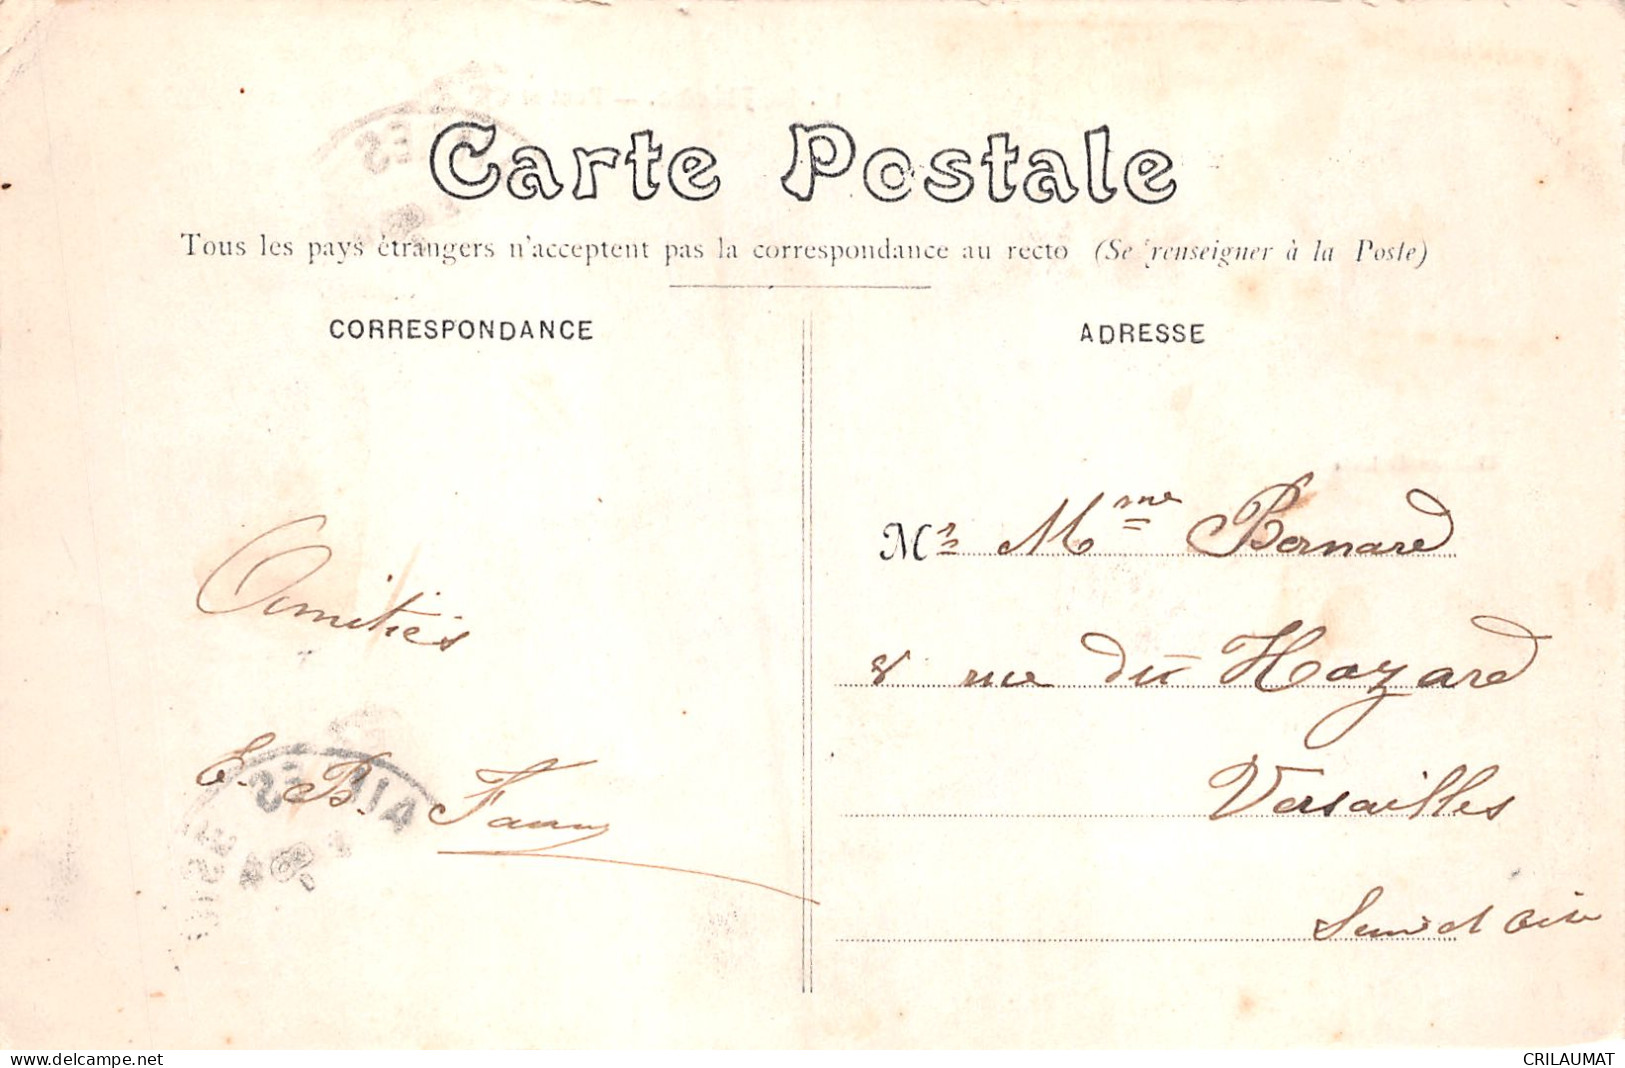 Carte Postale
Tous les pays étrangers n'acceptent pas la correspondance au recto (Se renseigner à la Poste)
CORRESPONDANCE
ADRESSE
Amitiés
E. B. 
Mrs Mme Bernard
8 rue du Hazard
Versailles
Seine et Oise
delcampe.net
CRILAUMAT